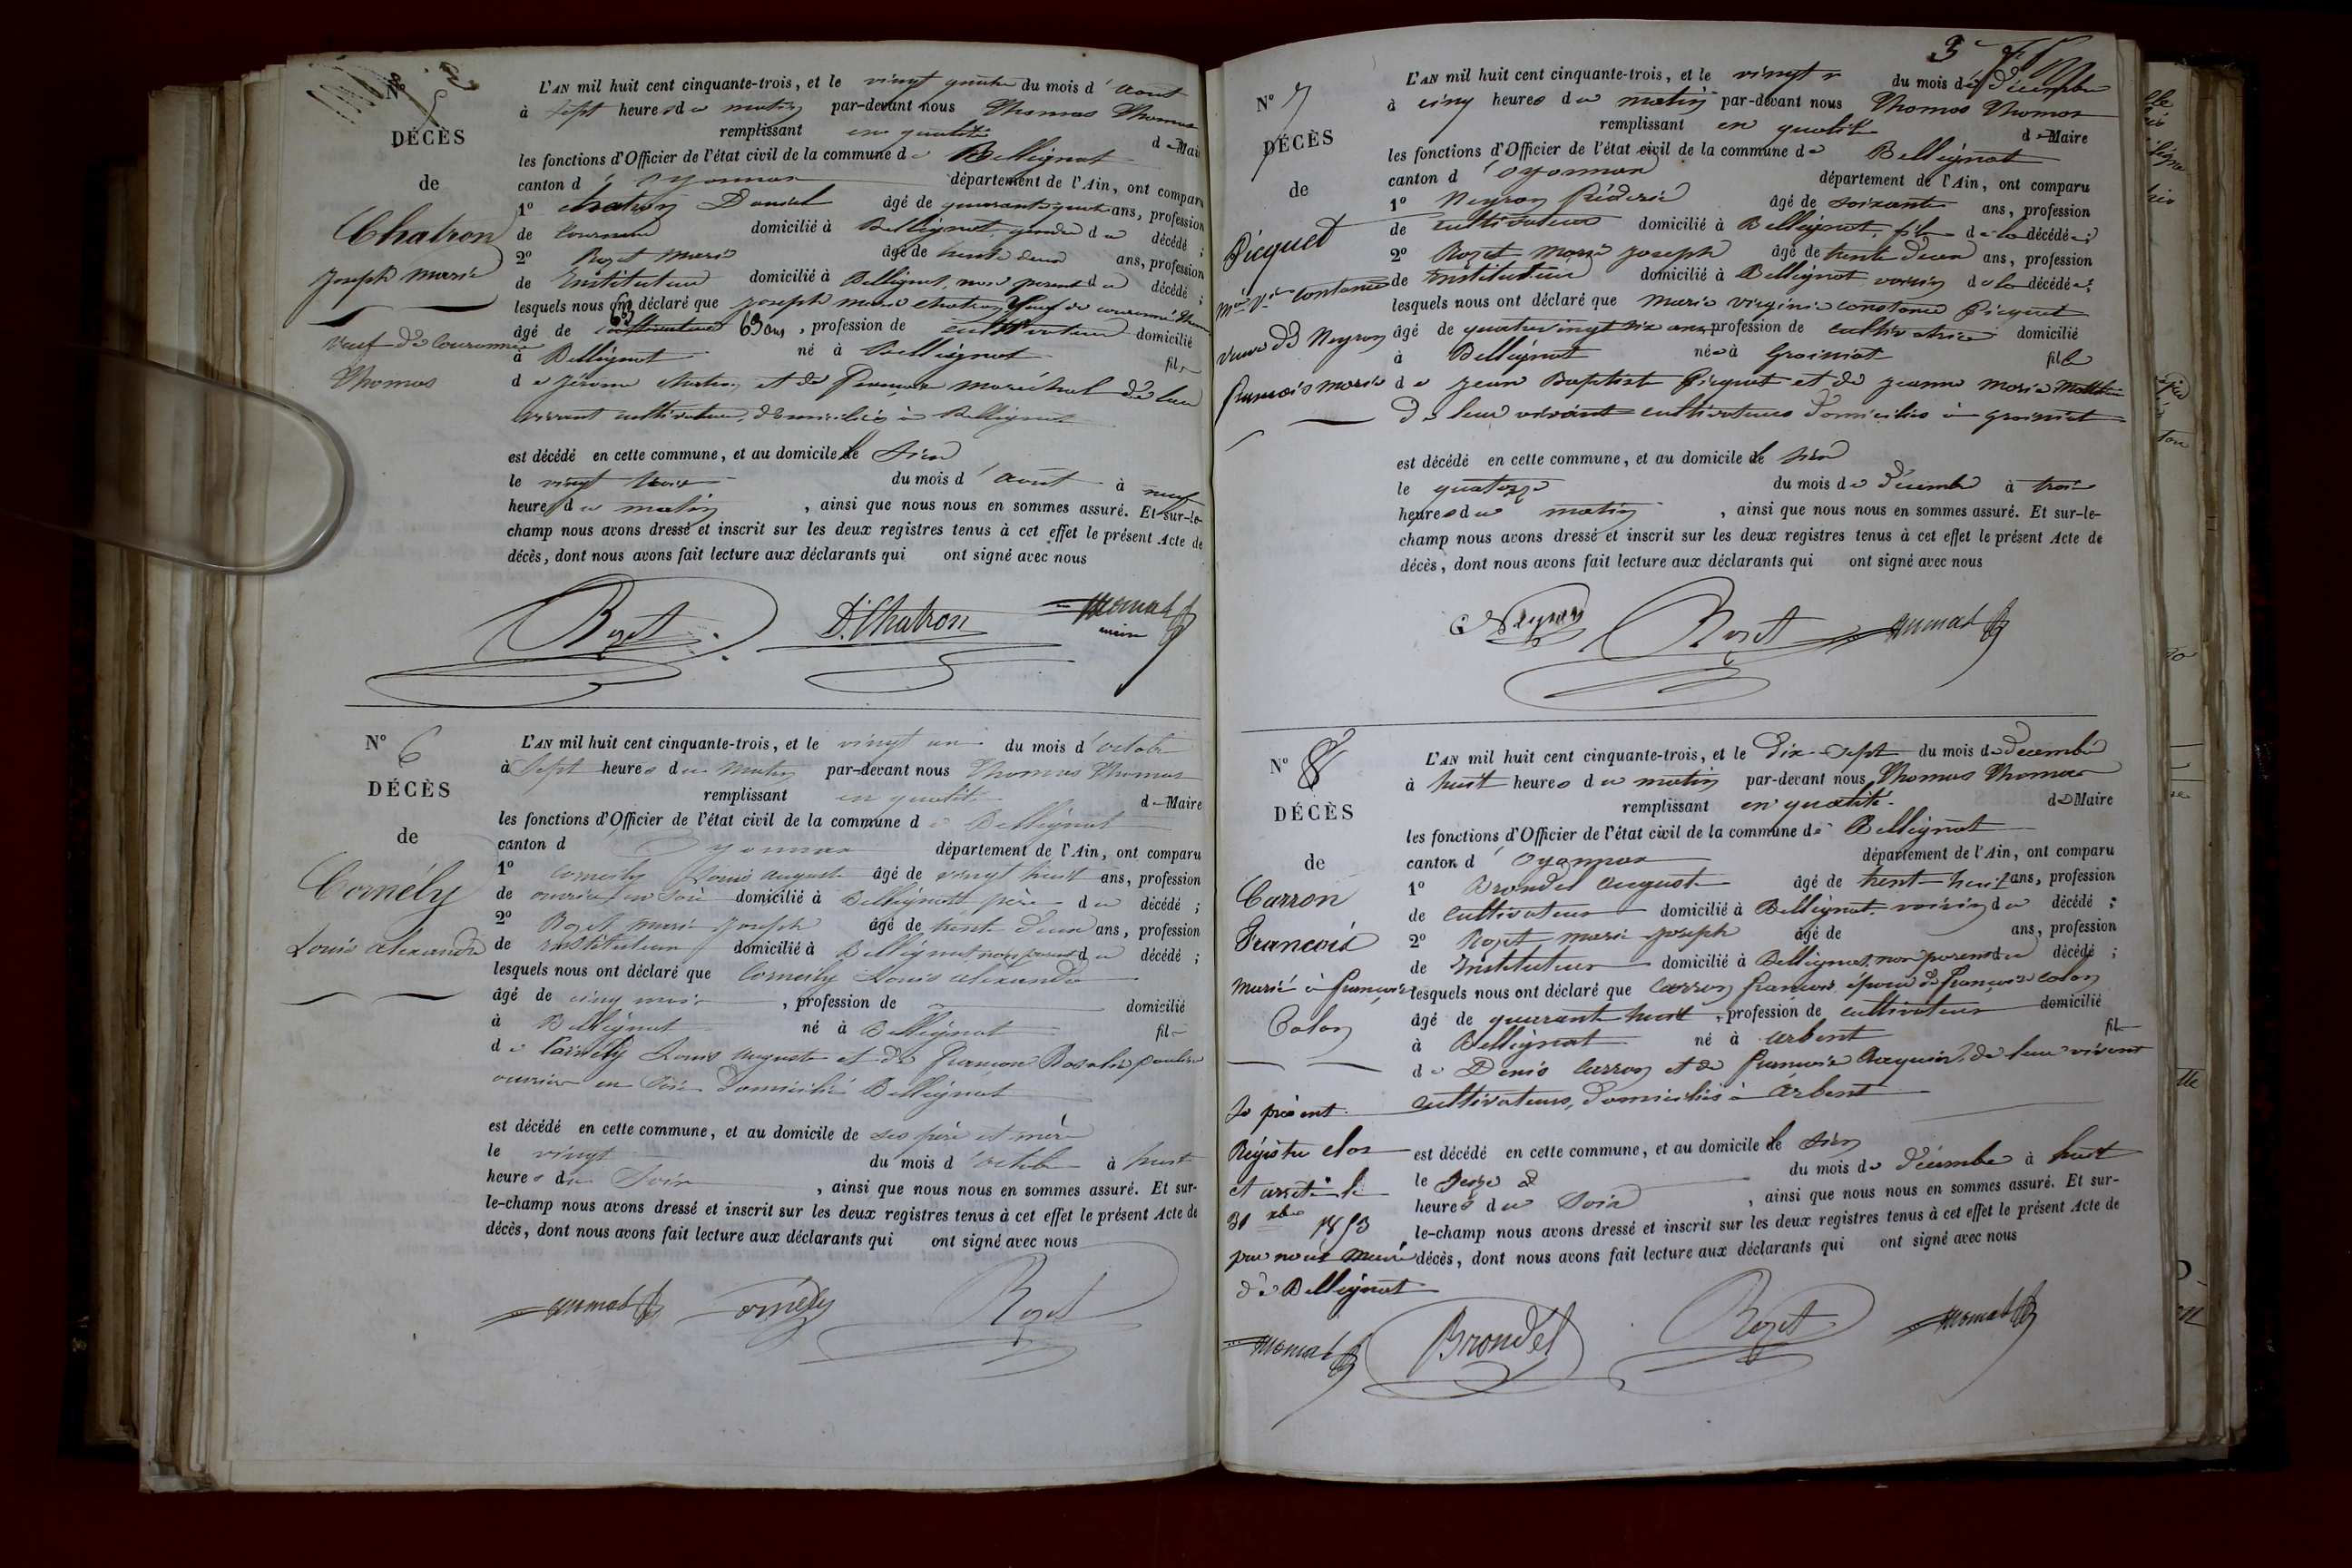 N° 5
DÉCÈS
de
Chatron
Joseph Marie
veuf de Couronnée
Thomas
L'AN mil huit cent cinquante-trois, et le vingt quatre du mois d'aout
à sept heures du matin par-devant nous Thomas Thomas
remplissant en qualité de Mair
les fonctions d'Officier de l'état civil de la commune de Bellignat
canton d'Oyonnax département de l'Ain, ont comparu
1° chatron Daniel âgé de quarante quatre ans, profession
de tourneur domicilié à Bellignat, gendre du décédé ;
2° Rozet Marie âgé de trente deux ans, profession
de Instituteur domicilié à Bellignat, non parent du décédé ;
lesquels nous ont déclaré que Joseph marie chatron, veuf de couronnée Thomas
âgé de 63 ans, profession de cultivateur domicilié
à Bellignat né à Bellignat fils
de Jérome chatron et de Françoise Maréchal de leur
vivant cultivateurs, domiciliés à Bellignat
est décédé en cette commune, et au domicile le sien
le vingt trois du mois d'aout à neuf
heures du matin, ainsi que nous nous en sommes assuré. Et sur-le-
champ nous avons dressé et inscrit sur les deux registres tenus à cet effet le présent Acte de
décès, dont nous avons fait lecture aux déclarants qui ont signé avec nous
Rozet D. Chatron Thomas
maire
N° 6
DÉCÈS
de
Cornély
Louis alexandre
L'AN mil huit cent cinquante-trois, et le vingt un du mois d'octobre
à sept heures du matin par-devant nous Thomas Thomas
remplissant en qualité de Maire
les fonctions d'Officier de l'état civil de la commune de Bellignat
canton d'Oyonnax département de l'Ain, ont comparu
1° Cornély Louis auguste âgé de vingt huit ans, profession
de ouvrier en soie domicilié à Bellignat père du décédé ;
2° Rozet marie joseph âgé de trente deux ans, profession
de instituteur domicilié à Bellignat non parent du décédé ;
lesquels nous ont déclaré que Cornély Louis alexandre
âgé de cinq mois, profession de domicilié
à Bellignat né à Bellignat fils
de Cornély Louis auguste et de Rosalie
ouvrier en soie domicilié Bellignat
est décédé en cette commune, et au domicile de ses père et mère
le vingt du mois d'octobre à huit
heures du soir, ainsi que nous nous en sommes assuré. Et sur-
le-champ nous avons dressé et inscrit sur les deux registres tenus à cet effet le présent Acte de
décès, dont nous avons fait lecture aux déclarants qui ont signé avec nous
Thomas Cornély Rozet
3
N° 7
DÉCÈS
de
Picquet
Mie Vie Constance
veuve de Neyron
François Marie
L'AN mil huit cent cinquante-trois, et le du mois de Décembre
à cinq heures du matin par-devant nous Thomas Thomas
remplissant en qualité de Maire
les fonctions d'Officier de l'état civil de la commune de Bellignat
canton d'Oyonnax département de l'Ain, ont comparu
1° Neyron Fréderic âgé de soixante ans, profession
de cultivateur domicilié à Bellignat, fils de la décédée ;
2° Rozet Marie joseph âgé de trente deux ans, profession
de Instituteur domicilié à Bellignat voisin de la décédée ;
lesquels nous ont déclaré que Marie virginie constance Picquet
âgé de quatre vingt six ans, profession de cultivatrice domicilié
à Bellignat née à Groissiat fille
de Jean Baptiste Picquet et de jeanne Marie
de leur vivant cultivateurs domiciliés à groissiat
est décédé en cette commune, et au domicile le sien
le quatorze du mois de Décembre à trois
heures du matin, ainsi que nous nous en sommes assuré. Et sur-le-
champ nous avons dressé et inscrit sur les deux registres tenus à cet effet le présent Acte de
décès, dont nous avons fait lecture aux déclarants qui ont signé avec nous
Neyron Rozet Thomas
N° 8
DÉCÈS
de
Carron
François
Marié à françoise
Colon
L'AN mil huit cent cinquante-trois, et le dix-sept du mois de Décembre
à huit heures du matin par-devant nous Thomas Thomas
remplissant en qualité de Maire
les fonctions d'Officier de l'état civil de la commune de Bellignat
canton d'Oyonnax département de l'Ain, ont comparu
1° Brondel auguste âgé de trente huit ans, profession
de cultivateur domicilié à Bellignat voisin du décédé ;
2° Rozet marie joseph âgé de ans, profession
de Instituteur domicilié à Bellignat, non parent du décédé ;
lesquels nous ont déclaré que Carron françois époux de françoise colon
âgé de quarante huit, profession de cultivateur domicilié
à Bellignat né à arbent fils
de Denis Carron et de françoise de leur vivant
cultivateurs, domiciliés à arbent
est décédé en cette commune, et au domicile le sien
le seize du mois de Décembre à huit
heures du soir, ainsi que nous nous en sommes assuré. Et sur-
le-champ nous avons dressé et inscrit sur les deux registres tenus à cet effet le présent Acte de
décès, dont nous avons fait lecture aux déclarants qui ont signé avec nous
Le présent
Régistre clos
et arreté le
31 xbre 1853
par nous maire
de Bellignat
Thomas Brondel Rozet Thomas